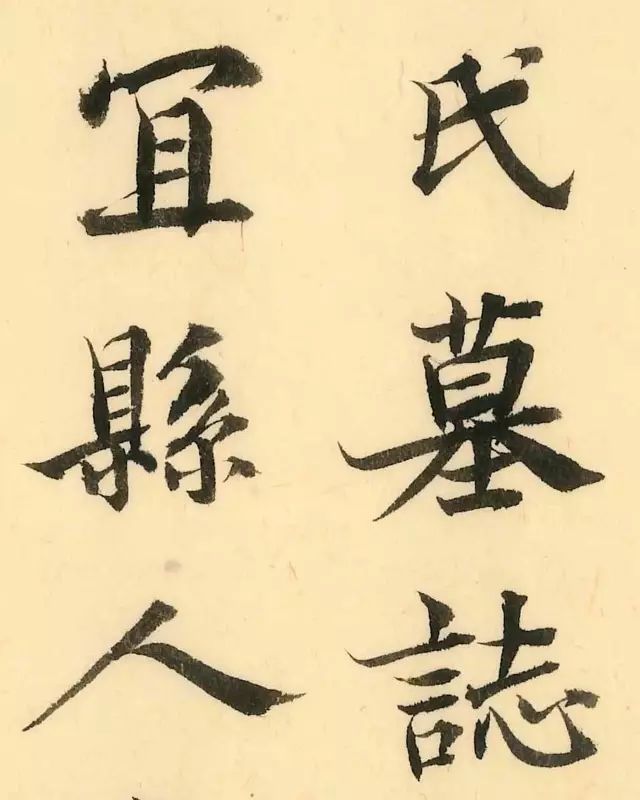 氏墓誌
冝縣人